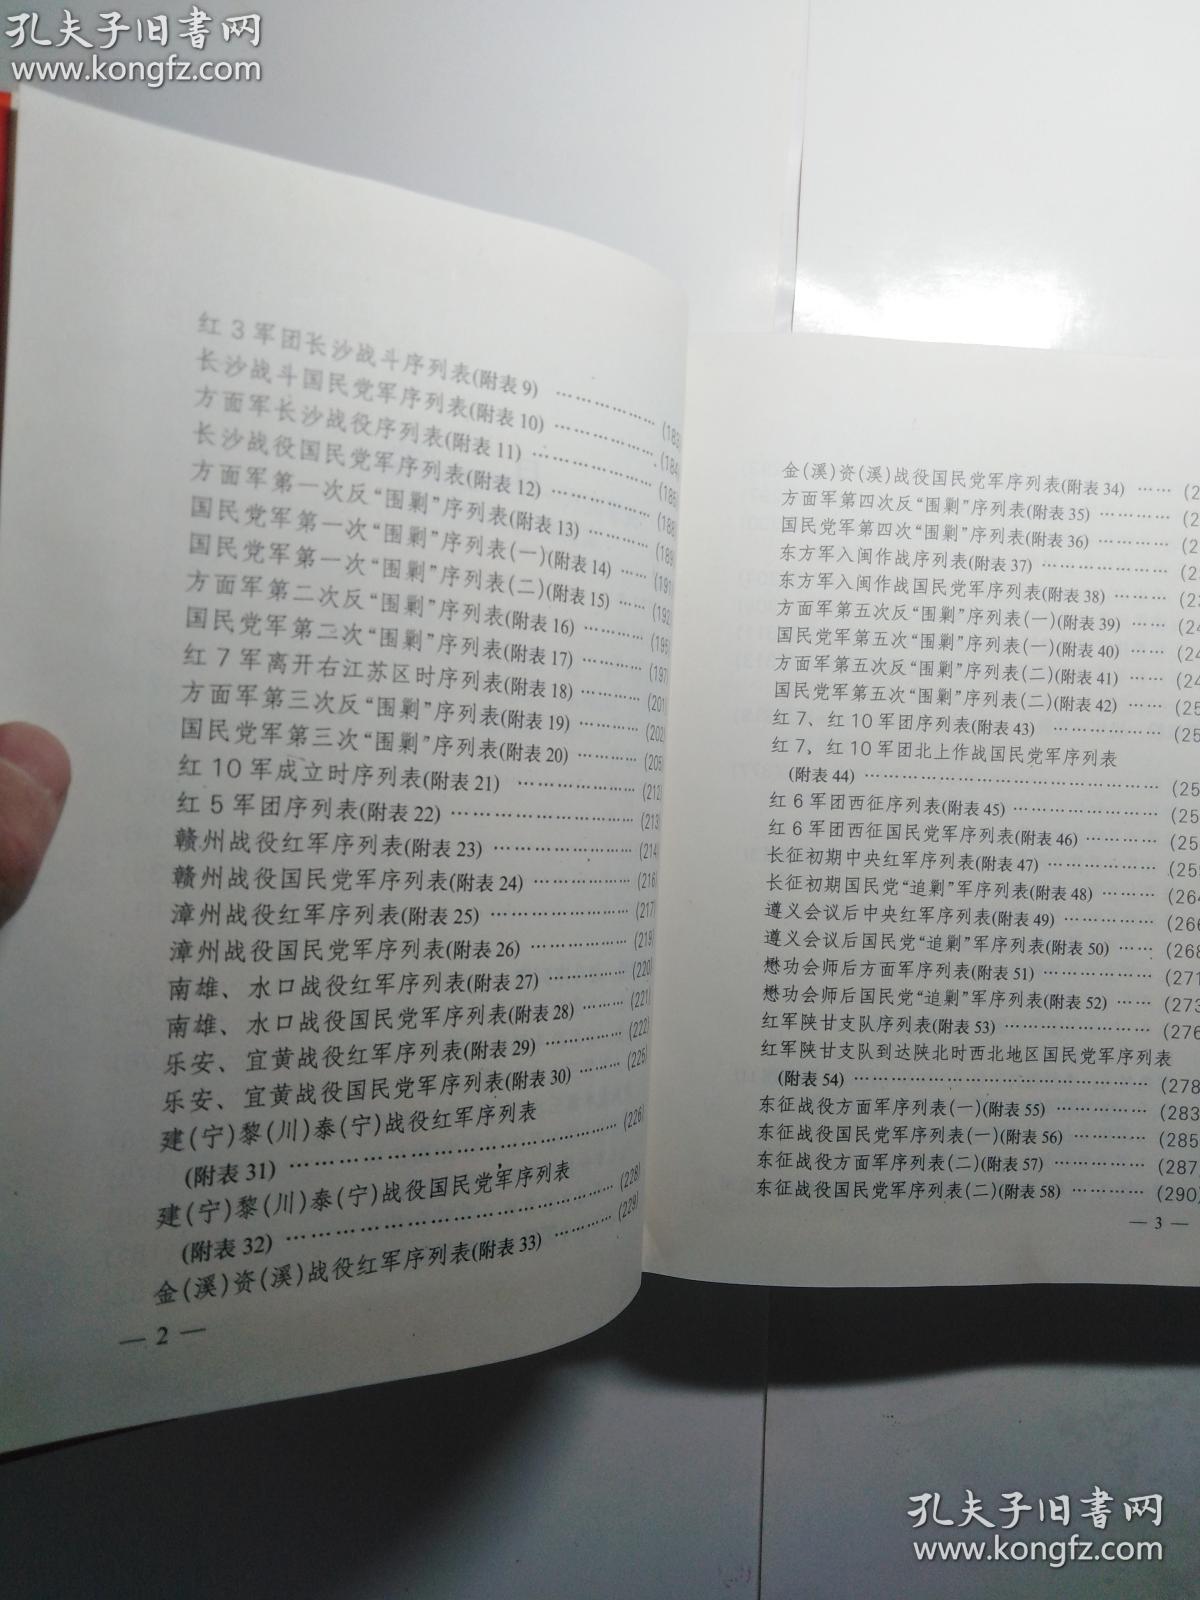 孔夫子旧書网
www.kongfz.com
红3军团长沙战斗序列表(附表9) ……………… (183)
长沙战斗国民党军序列表(附表10) ……………… (184)
方面军长沙战役序列表(附表11) ……………… (185)
长沙战役国民党军序列表(附表12) ……………… (188)
方面军第一次反“围剿”序列表(附表13) ………… (189)
国民党军第一次“围剿”序列表(一)(附表14) …… (191)
国民党军第一次“围剿”序列表(二)(附表15) …… (192)
方面军第二次反“围剿”序列表(附表16) ………… (195)
国民党军第二次“围剿”序列表(附表17) ………… (197)
红7军离开右江苏区时序列表(附表18) ………… (201)
方面军第三次反“围剿”序列表(附表19) ………… (202)
国民党军第三次“围剿”序列表(附表20) ………… (205)
红10军成立时序列表(附表21) ……………… (212)
红5军团序列表(附表22) …………………… (213)
赣州战役红军序列表(附表23) ……………… (214)
赣州战役国民党军序列表(附表24) ……………… (216)
漳州战役红军序列表(附表25) ……………… (217)
漳州战役国民党军序列表(附表26) ……………… (219)
南雄、水口战役红军序列表(附表27) …………… (220)
南雄、水口战役国民党军序列表(附表28) ……… (221)
乐安、宜黄战役红军序列表(附表29) …………… (222)
乐安、宜黄战役国民党军序列表(附表30) ……… (225)
建(宁)黎(川)泰(宁)战役红军序列表
(附表31) …………………………………… (226)
建(宁)黎(川)泰(宁)战役国民党军序列表
(附表32) …………………………………… (228)
金(溪)资(溪)战役红军序列表(附表33) ………… (229)
— 2 —
金(溪)资(溪)战役国民党军序列表(附表34) …… (2
方面军第四次反“围剿”序列表(附表35) ………… (2
国民党军第四次“围剿”序列表(附表36) ………… (2
东方军入闽作战序列表(附表37) ………………… (2
东方军入闽作战国民党军序列表(附表38) ……… (2
方面军第五次反“围剿”序列表(一)(附表39) …… (24
国民党军第五次“围剿”序列表(一)(附表40) …… (24
方面军第五次反“围剿”序列表(二)(附表41) …… (24
国民党军第五次“围剿”序列表(二)(附表42) …… (25
红7、红10军团序列表(附表43) ……………… (25
红7、红10军团北上作战国民党军序列表
(附表44) …………………………………… (25
红6军团西征序列表(附表45) ………………… (25
红6军团西征国民党军序列表(附表46) ………… (25
长征初期中央红军序列表(附表47) …………… (25
长征初期国民党“追剿”军序列表(附表48) ……… (264
遵义会议后中央红军序列表(附表49) ………… (266
遵义会议后国民党“追剿”军序列表(附表50) …… (268
懋功会师后方面军序列表(附表51) …………… (271
懋功会师后国民党“追剿”军序列表(附表52) …… (273
红军陕甘支队序列表(附表53) ………………… (276
红军陕甘支队到达陕北时西北地区国民党军序列表
(附表54) …………………………………… (278
东征战役方面军序列表(一)(附表55) ………… (283
东征战役国民党军序列表(一)(附表56) ……… (285
东征战役方面军序列表(二)(附表57) ………… (287
东征战役国民党军序列表(二)(附表58) ……… (290)
— 3 —
孔夫子旧書网
www.kongfz.com